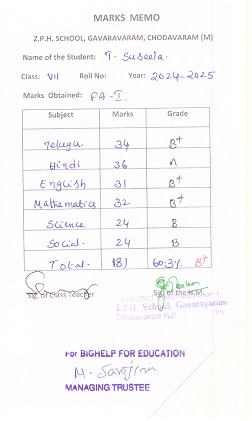 MARKS MEMO
Z.P.H. SCHOOL, GAVARAVARAM, CHODAVARAM (M)
Name of the Student: T. Suseela.
Class: VII Roll No: Year: 2024-2025
Marks Obtained: FA-I.
Subject Marks Grade
Telugu 34 B+
Hindi 36 A
English 31 B+
Mathematics 32 B+
Science 24 B
Social. 24 B
Total. 181 60.3% B+
Sig. of Class Teacher Sig. of the H.M.
Z.P.H. School, Gavaravaram
Chodavaram Mdl
For BIGHELP FOR EDUCATION
M. Sarojini
MANAGING TRUSTEE